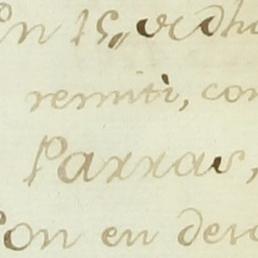 En 15,, de dho
remiti, con
Parras,
Con en des